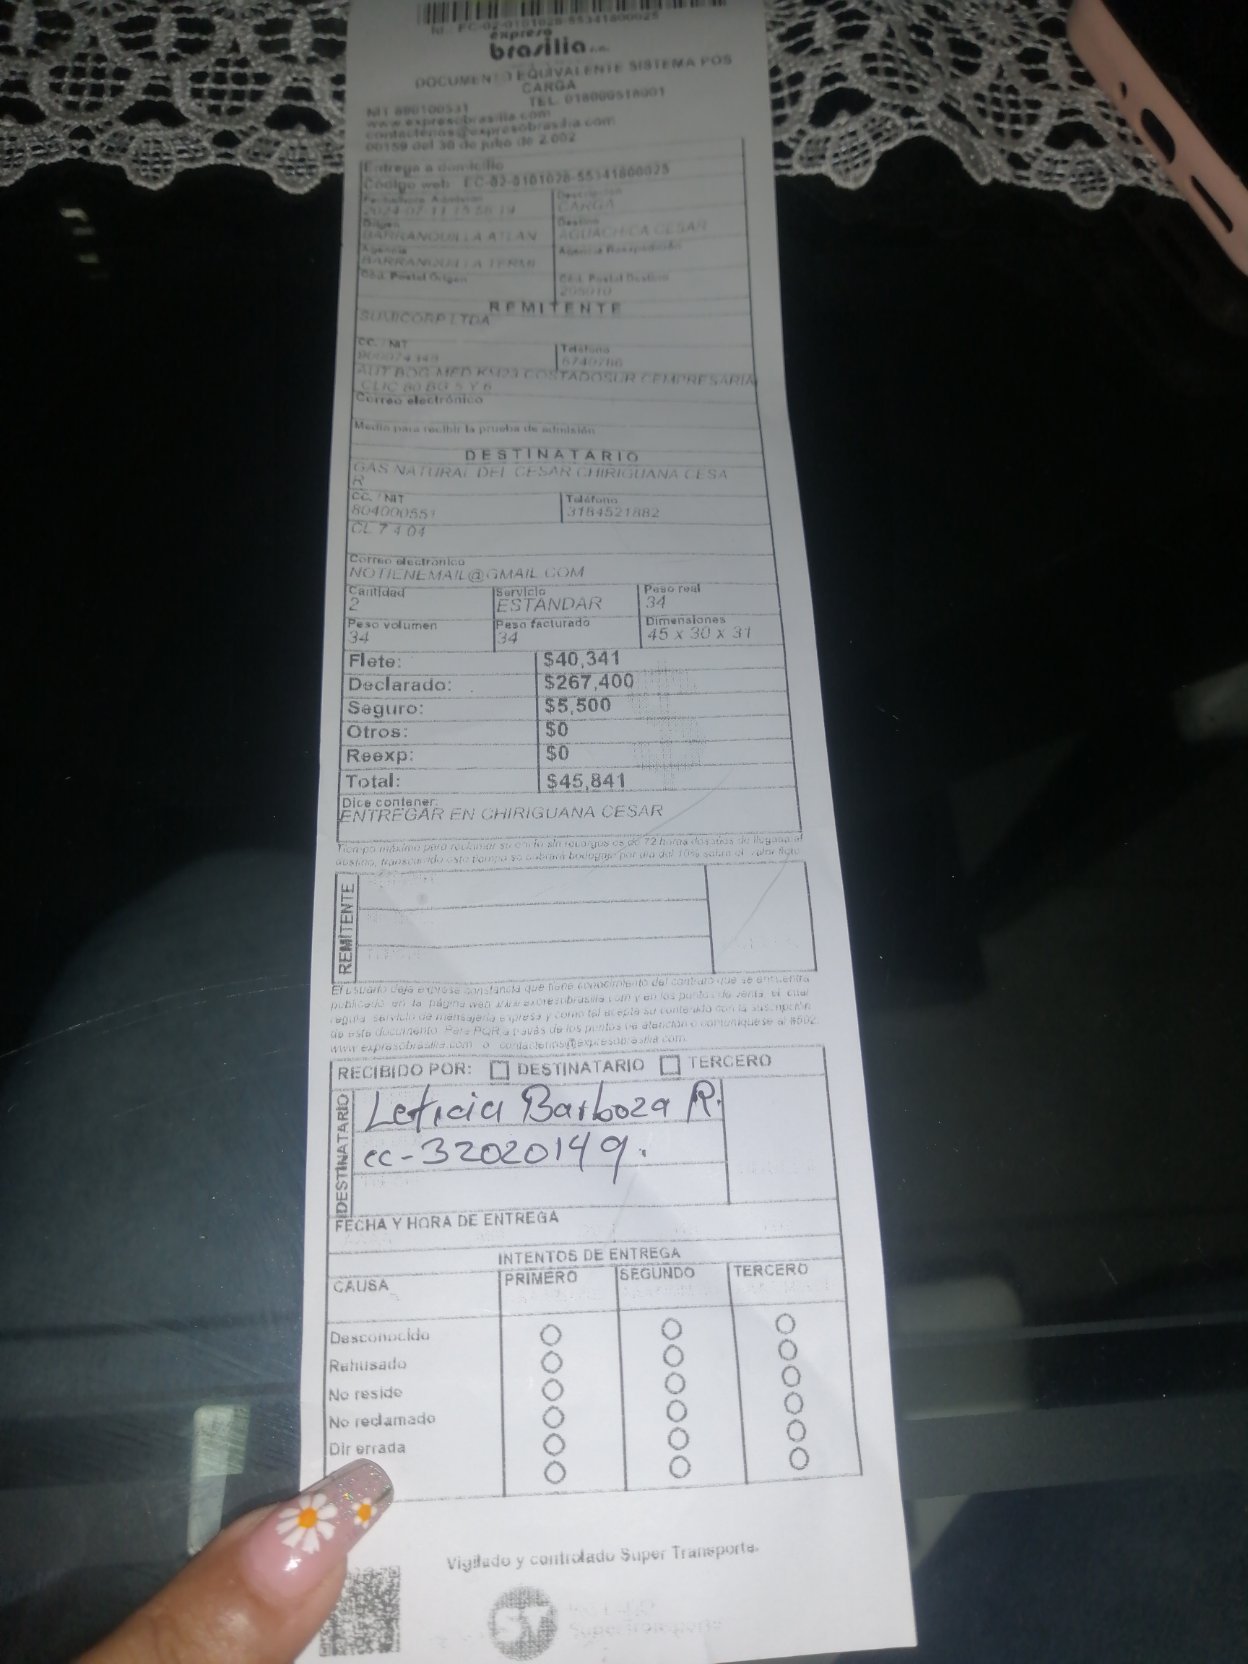 Id.: EC-02-0101028-55341800025
expreso
brasilia s.a.
DOCUMENTO EQUIVALENTE SISTEMA POS
CARGA
NIT 890100531 TEL. 018000518001
www.expresobrasilia.com
contactenos@expresobrasilia.com
00159 del 30 de julio de 2.002
Entrega a domicilio
Código web: EC-02-0101028-55341800025
Fecha/hora Admisión Descripción
2024-07-11 CARGA
Origen Destino
BARRANQUILLA ATLAN AGUACHICA CESAR
Agencia Agencia Reexpedición
BARRANQUILLA TERMI
Cód. Postal Origen Cód. Postal Destino
205010
REMITENTE
SUMICORP LTDA
CC. / NIT Teléfono
AUT BOG MED KM23 COSTADOSUR CEMPRESARIA
CLIC 80 BG 5 Y 6
Correo electrónico
Medio para recibir la prueba de admisión
DESTINATARIO
GAS NATURAL DEL CESAR CHIRIGUANA CESA
R
CC. / NIT Teléfono
804000551 3184521882
CL 7 4 04
Correo electrónico
NOTIENEMAIL@GMAIL.COM
Cantidad Servicio Peso real
2 ESTANDAR 34
Peso volumen Peso facturado Dimensiones
34 34 45 x 30 x 31
Flete: $40,341
Declarado: $267,400
Seguro: $5,500
Otros: $0
Reexp: $0
Total: $45,841
Dice contener:
ENTREGAR EN CHIRIGUANA CESAR
Tiempo máximo para reclamar su envío sin recargos es de 72 horas después de llegado al
destino, transcurrido este tiempo se cobrará bodegaje por día del 10% sobre el valor flete
REMITENTE
El usuario deja expresa constancia que tiene conocimiento del contrato que se encuentra
publicado en la página web www.expresobrasilia.com y en los puntos de venta, el cual
regula servicio de mensajería expresa y como tal acepta su contenido con la suscripción
de este documento. Para PQR a través de los puntos de atención o comuníquese al #502.
www.expresobrasilia.com o contactenos@expresobrasilia.com
RECIBIDO POR: DESTINATARIO TERCERO
DESTINATARIO
Leticia Barboza R.
cc-32020149.
FECHA Y HORA DE ENTREGA
INTENTOS DE ENTREGA
CAUSA PRIMERO SEGUNDO TERCERO
Desconocido
Rehusado
No reside
No reclamado
Dir errada
Vigilado y controlado Super Transporte.
ST
Supertransporte